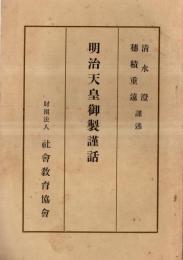 清水澄
穂積重遠 謹述
明治天皇御製謹話
財團法人 社會教育協會